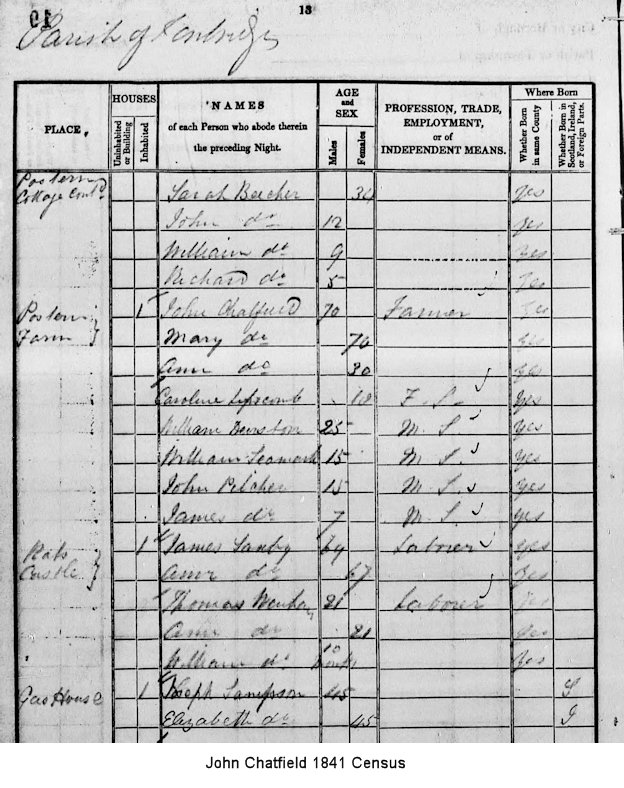 13
Parish of Tonbridge
PLACE,
HOUSES
Uninhabited or Building
Inhabited
NAMES
of each Person who abode therein
the preceding Night.
AGE
and
SEX
Males
Females
PROFESSION, TRADE,
EMPLOYMENT,
or of
INDEPENDENT MEANS.
Where Born
Whether Born in same County
Whether Born in Scotland, Ireland, or Foreign Parts.
Postern
Cottage Contd Sarah Beecher 34 Yes
John do 12 Yes
William do 9 Yes
Richard do 5 Yes
Postern 1 John Chatfield 70 Farmer Yes
Farm Mary do 70 Yes
Ann do 30 Yes
Caroline Lipscomb 18 F. S. Yes
William 25 M. S. Yes
William 15 M. S. Yes
John Pilcher 15 M. S. Yes
James do 7 M. S. Yes
1 James 64 Laborer Yes
Castle Ann do 67 Yes
Thomas 21 Laborer Yes
Ann do 21 Yes
William do 10 Yes
Gas House 1 Joseph Sampson 45 I
Elizabeth do 45 I
John Chatfield 1841 Census